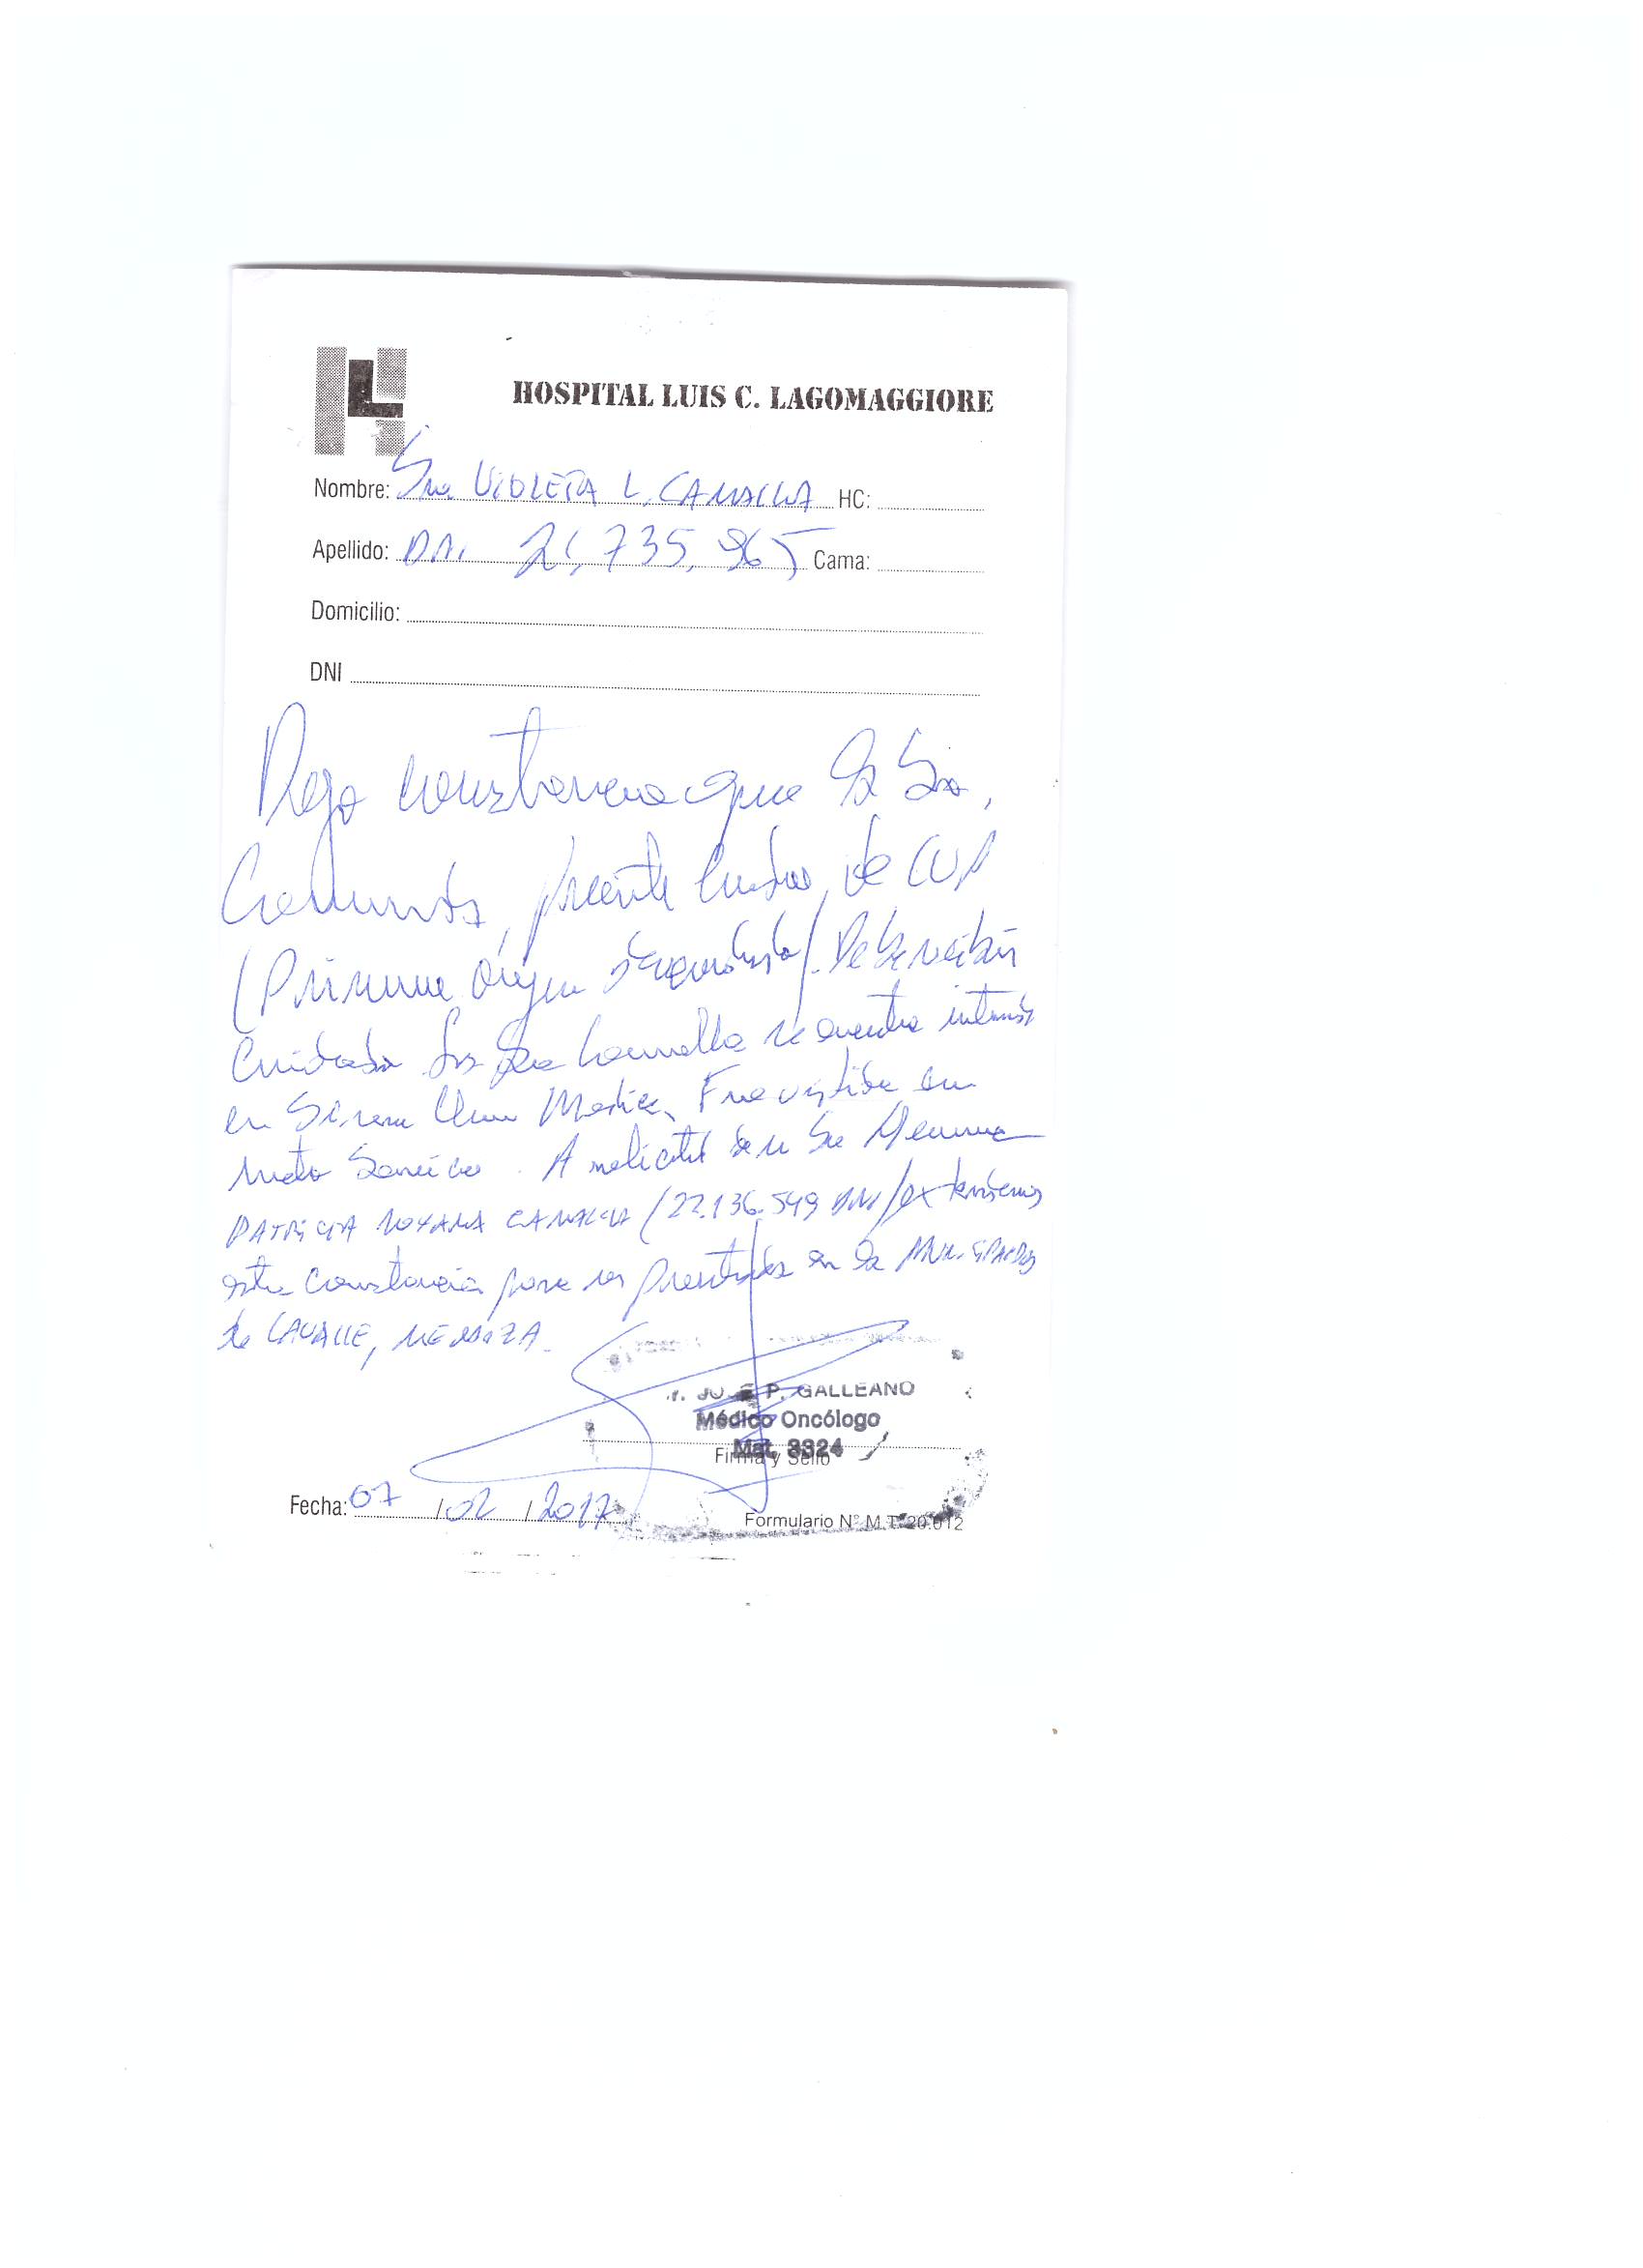 HOSPITAL LUIS C. LAGOMAGGIORE
Nombre: Sra. VIOLETA L. CAMALLA HC:
Apellido: DNI 21,735,965 Cama:
Domicilio:
DNI
Dejo constancia que la Sra,
presenta cuadro de CUP
(Primario origen desconocido). Debe recibir
cuidados Sra se encuentra internada
en Clínica Médica. Fue vista en
nuestro Servicio. A solicitud de su Sra Hermana
PATRICIA (22.136.549 DNI) extendemos
esta constancia para ser presentada en la
de LAVALLE, MENDOZA.
P. GALLEANO
Médico Oncólogo
Mat. 3324
Firma y Sello
Fecha: 07 / 02 / 2017
Formulario N° M.T. 20.012